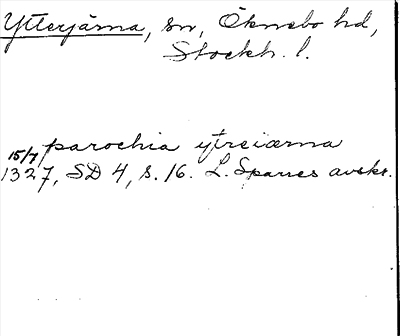 Ytterjärna, sn, Öknebo hd,
Stockh. l.
parochia ytreiærna
15/7 1327, SD 4, s. 16. L. Sparres avskr.